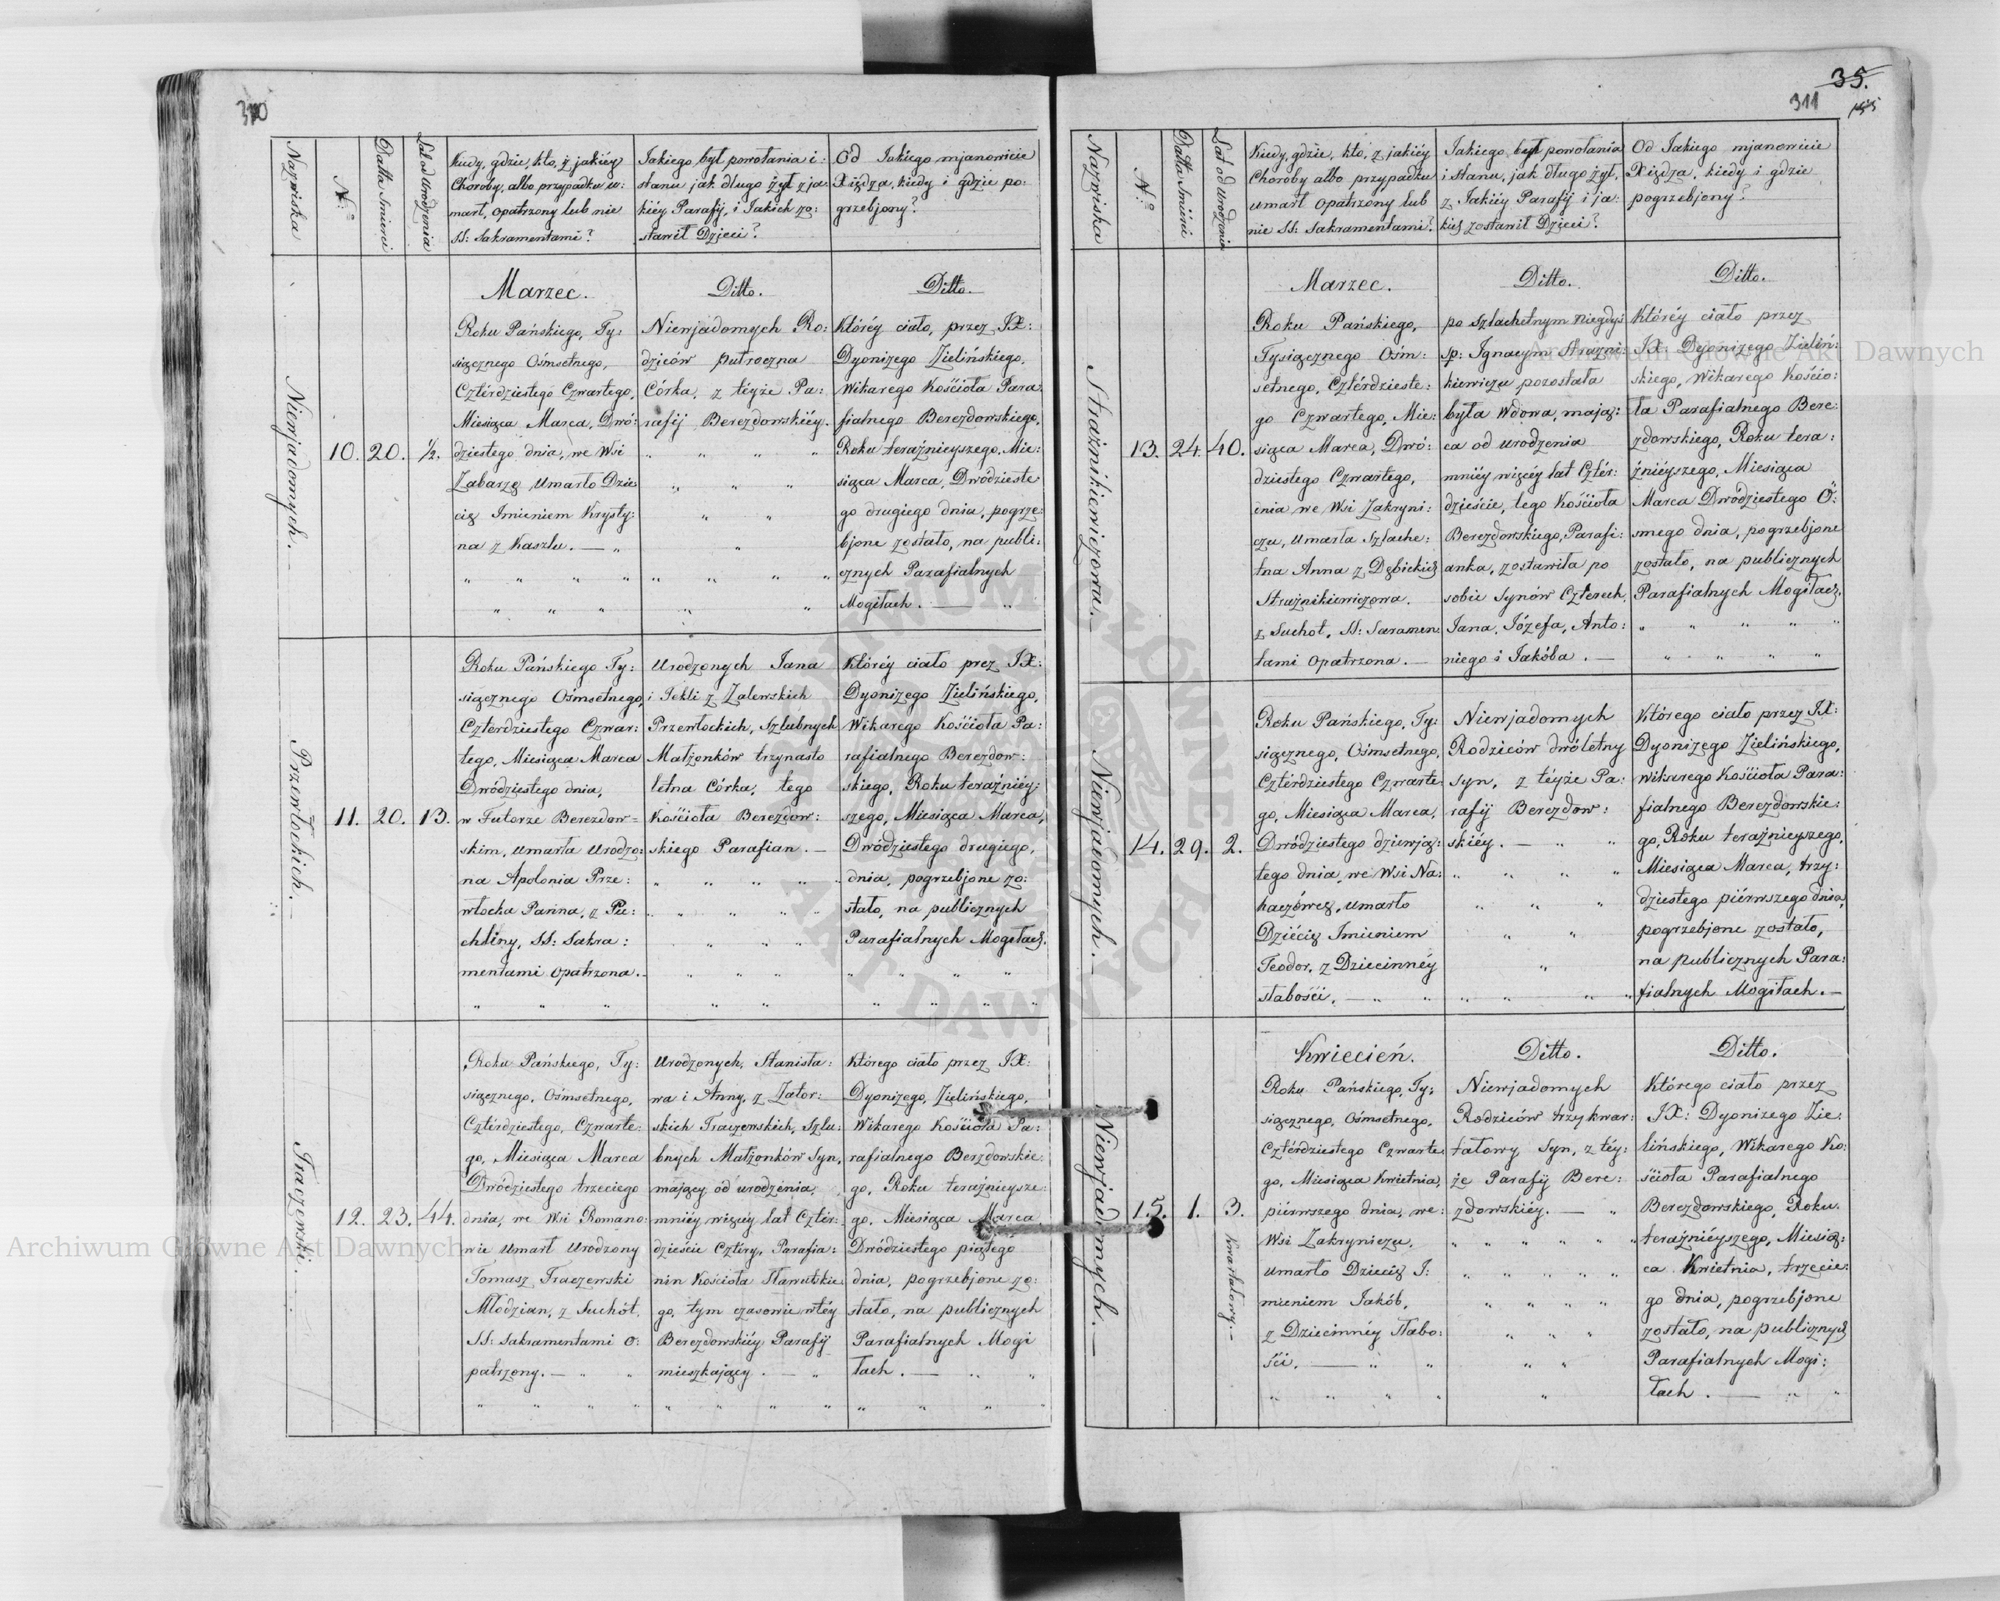 310
Nazwiska
N.º
Datta Śmierci
Lat od Urodzenia
Kiedy, gdzie, kto, z jakiéy
Choroby, albo przypadku u:
marł, opatrzony lub nie
SS: Sakramentami?
Jakiego był powołania i:
stanu jak długo żył z ja:
kiéy Parafij, i Jakich zo:
stawił Dzieci?
Od Jakiego mjanowicie
Xiędza, kiedy i gdzie po:
grzebjony?
Niewjadomych.
10.
20.
1/2.
Marzec.
Roku Pańskiego, Ty:
siącznego Ośmsetnego,
Cztérdziestego Czwartego,
Miesiąca Marca, Dwó:
dziestego dnia, we Wsi
Zabarzę Umarło Dzie
cię Imieniem Krysty:
na z Kaszlu. —
Ditto.
Niewjadomych Ro:
dziców putroczna
Córka, z téyże Pa:
rafij Berezdowskiéy.
Ditto.
Któréy ciało, przez JX:
Dyonizego Zielińskiego,
Wikarego Kościoła Para:
fialnego Berezdowskiego,
Roku teraźnieyszego, Mie:
siąca Marca, Dwódzieste
go drugiego dnia, pogrze:
bjone zostało, na publi:
cznych Parafialnych
Mogiłach. —
Przewłockich. —
11.
20.
13.
Roku Pańskiego Ty:
siącznego Ośmsetnego,
Czterdziestego Czwar:
tego, Miesiąca Marca
Dwódziestego dnia,
w Futorze Berezdow=
skim, Umarła Urodzo:
na Apolonia Prze:
włocka Panna, z Pu:
chliny, SS: Sakra:
mentami opatrzona. —
Urodzonych Jana
i Tekli z Zalewskich
Przewłockich, Szlubnych
Małżonków trzynasto
letna Córka, tego
Kościoła Berezdow:
skiego Parafian. —
Któréy ciało prez JX:
Dyonizego Zielińskiego,
Wikarego Kościoła Pa:
rafialnego Berezdow:
skiego, Roku teraźniéy:
szego, Miesiąca Marca,
Dwódziestego drugiego,
dnia, pogrzebjone zo:
stało, na publicznych
Parafialnych Mogiłach.
Traczewski. —
12.
23.
44.
Roku Pańskiego, Ty:
siącznego, Ośmsetnego,
Cztérdziestego, Czwarte:
go, Miesiąca Marca
Dwódziestego trzeciego
dnia, we Wsi Romano:
wie Umarł Urodzony
Tomasz Traczewski
Młodzian, z Suchot.
SS: Sakramentami o:
patrzony. —
Urodzonych, Stanisła:
wa i Anny, z Zator:
skich Traczewskich, Szlu:
bnych Małżonków Syn,
mający od urodzenia,
mniéy więcéy lat Cztér:
dzieście Cztéry, Parafia:
nin Kościoła Sławutskie
go, tym czasowie wtéy
Berezdowskiéy Parafij
mieszkający. —
Którego ciało przez JX:
Dyonizego, Zielińskiego,
Wikarego Kościoła Pa:
rafialnego Berezdowskie
go, Roku teraźnieysze:
go, Miesiąca Marca
Dwódziestego piątego
dnia, pogrzebjone zo:
stało, na publicznych
Parafialnych Mogi
łach. —
35.
311
Nazwiska
N.º
Datta Śmierci
Lat od Urodzenia
Kiedy, gdzie, kto, z jakiéy
Choroby albo przypadku
umarł opatrzony lub
nie SS: Sakramentami?
Jakiego był powołania
i stanu, jak długo żył,
z Jakiéy Parafij i ja:
kich zostawił Dzieci?
Od Jakiego mjanowicie
Xiędza, kiedy i gdzie
pogrzebjony?
Strażnikiewiczowa. —
13.
24.
40.
Marzec.
Roku Pańskiego,
Tysiącznego Ośm:
setnego, Cztérdzieste:
go Czwartego, Mie:
siąca Marca, Dwó:
dziestego Czwartego,
dnia we Wsi Zakryni:
czu, Umarła Szlache:
tna Anna z Dębickich
Strażnikiewiczowa.
z Suchot, SS: Saramen:
tami opatrzona. —
Ditto.
po Szlachetnym niegdyś
sp: Ignacym Strażni:
kiewiczu pozostała
była Wdowa, mają:
ca od urodzenia
mniéy więcéy lat Cztér:
dzieście, tego Kościoła
Berezdowskiego, Parafi:
anka, zostawiła po
sobie Synów Czterech,
Jana, Józefa, Anto:
niego i Jakóba. —
Ditto.
Któréy ciało przez
JX: Dyonizego Zieliń:
skiego, Wikarego Kościo:
ła Parafialnego Bere:
zdowskiego, Roku tera:
źniéyszego, Miesiąca
Marca Dwódziestego Ó:
smego dnia, pogrzebjone
zostało, na publicznych
Parafialnych Mogiłach.
Niewjadomych. —
14.
29.
2.
Roku Pańskiego, Ty:
siącznego, Ośmsetnego,
Cztérdziestego Czwarte
go, Miesiąca Marca,
Dwódziestego dziewją:
tego dnia, we Wsi Na:
haczówcę, umarło
Dziécię Imieniem
Teodor, z Dziecinnéy
słabości. —
Niewjadomych
Rodziców dwóletny
Syn, z téyże Pa:
rafij Berezdow:
skiéy. —
Którego ciało przez JX:
Dyonizego Zielińskiego,
wikarego Kościoła Para:
fialnego Berezdowskie:
go, Roku teraźnieyszego,
Miesiąca Marca, trzy:
dziestego piérwszego dnia,
pogrzebjone zostało,
na publicznych Para:
fialnych Mogiłach. —
Niewjadomych. —
15.
1.
3.
Kwartałowy. —
Kwiecień.
Roku Pańskiego, Ty:
siącznego, Ośmsetnego,
Cztérdziestego Czwarte
go, Miesiąca Kwietnia,
piérwszego dnia, we:
Wsi Zakryniczu,
umarło Dziecię I:
mieniem Jakób,
z Dziecinnéy Słabo:
ści. —
Ditto.
Niewjadomych
Rodziców trzy kwar:
tałowy Syn, z téy:
że Parafij Bere:
zdowskiéy. —
Ditto.
Którego ciało przez
JX: Dyonizego Zie:
lińskiego, Wikarego Ko:
ścioła Parafialnego
Berezdowskiego, Roku
teraźniéyszego, Miesią:
ca Kwietnia, trzecie:
go dnia, pogrzebjone
zostało, na publicznych
Parafialnych Mogi:
łach. —
Archiwum Główne Akt Dawnych
Archiwum Główne Akt Dawnych
ARCHIWUM GŁÓWNE AKT DAWNYCH